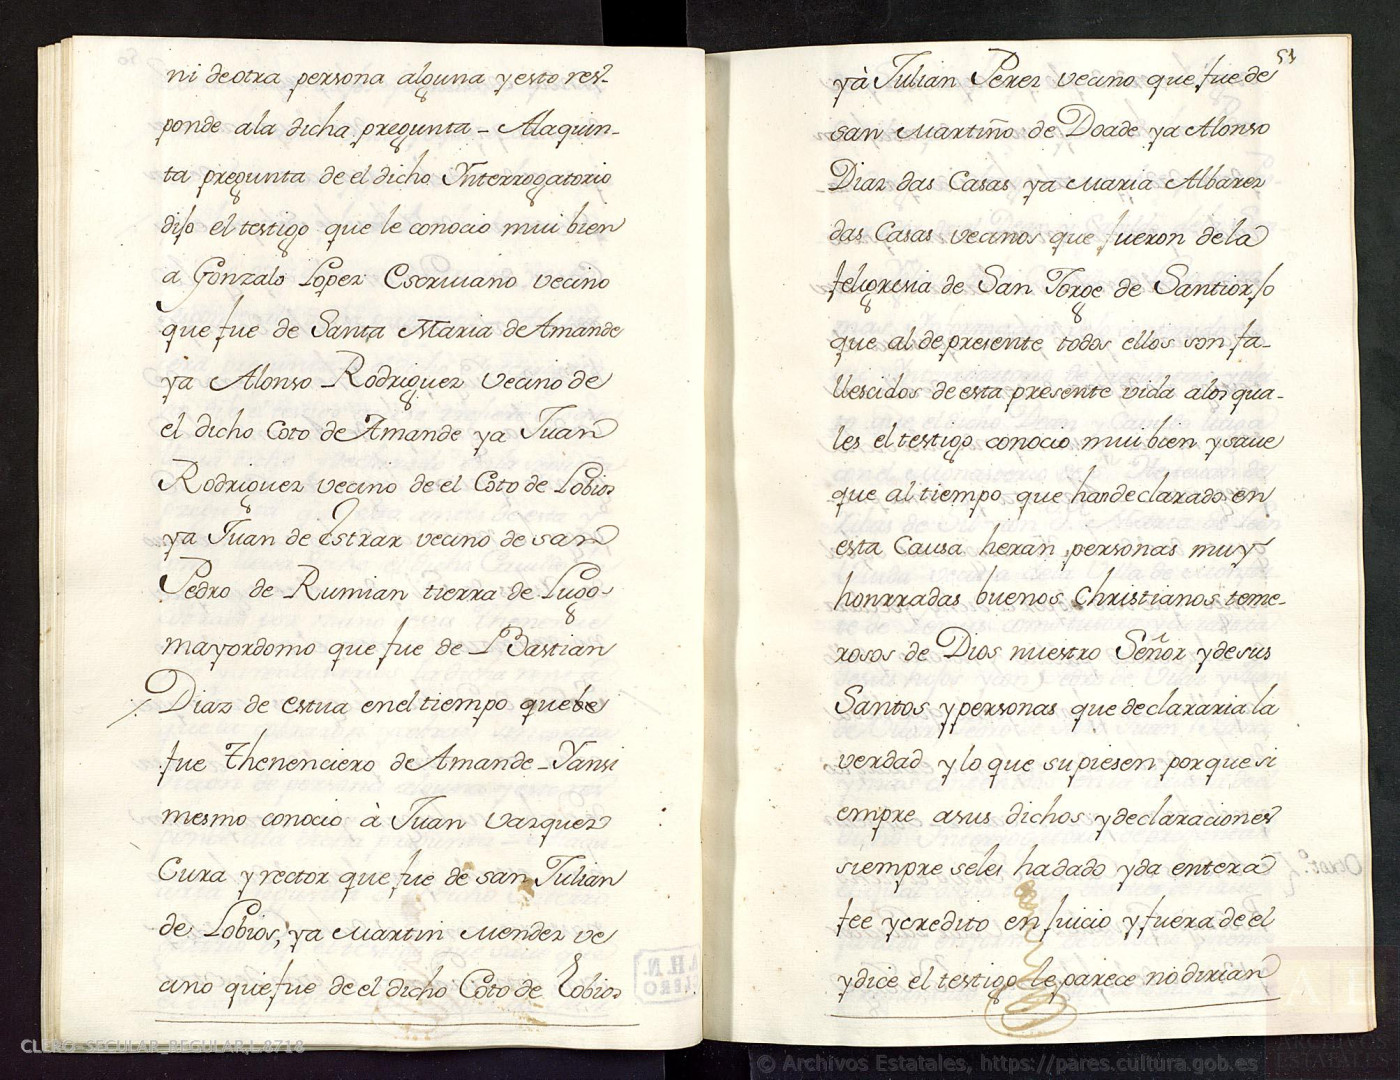 ni de otra persona alguna y esto res-
ponde ala dicha pregunta - Alaquin-
ta pregunta de el dicho Ynterrogatorio
dijo el testigo que le conocio mui bien
a Gonzalo Lopez Escriuano vecino
que fue de Santa Maria de Amande
ya Alonso Rodriguez vecino de
el dicho Coto de Amande ya Juan
Rodriguez vecino de el Coto de Lobios
ya Juan de Estrar vecino de san
Pedro de Rumian tierra de Lugo-
mayordomo que fue de Bastian
Diaz de estua en el tiempo que
fue Thenenciero de Amande - Yansi
mesmo conocio à Juan Vazquez
Cura y rector que fue de san Julian
de Lobios, ya Martin Mendez ve
cino que fue de el dicho Coto de Lobios
51
yà Julian Perez vecino que fue de
san Martiño de Doade ya Alonso
Diaz das Casas ya Maria Albarez
das Casas vecinos que fueron de la
feligresia de San Jorge de Santiorjo
que al de presente todos ellos son fa-
llescidos de esta presente vida alos qua-
les el testigo conocio mui bien y saue
que al tiempo que han declarado en
esta Causa heran personas muy
honrradas buenos Christianos teme-
rosos de Dios nuestro Señor y de sus
Santos y personas que declararia la
verdad y lo que supiesen por que si
empre asus dichos y declaraciones
siempre seles ha dado y da entera
fee y credito en juicio y fuera de el
y dice el testigo le parece no dirian
A.H.N.
CLERO
CLERO_SECULAR_REGULAR,L.8718
© Archivos Estatales, https://pares.cultura.gob.es
ARCHIVOS
ESTATALES